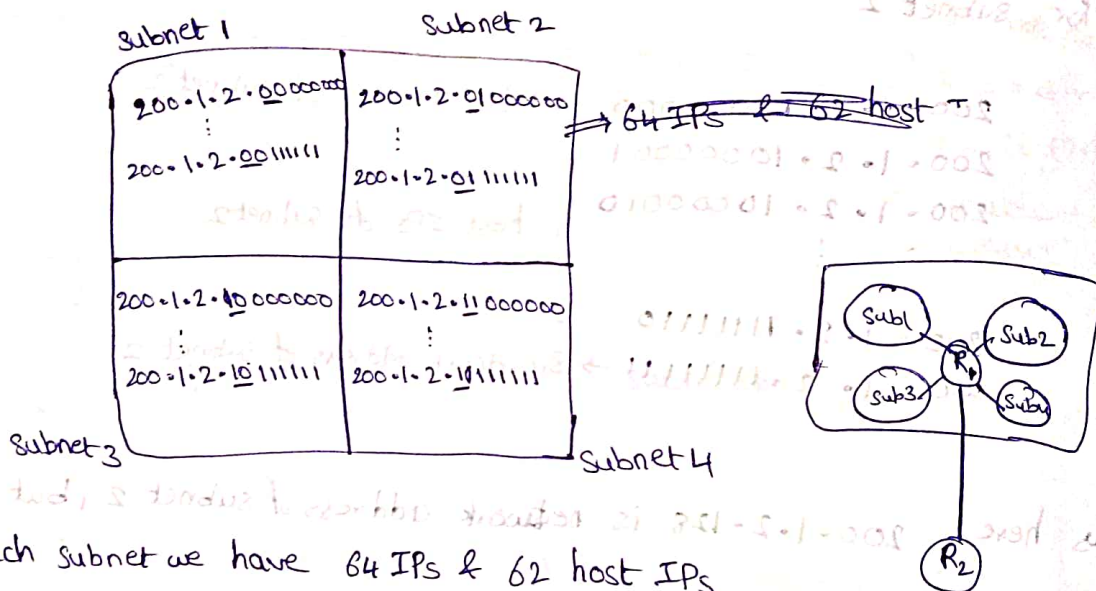 Subnet 1 Subnet 2
200.1.2.00000000 200.1.2.01000000
⋮ ⋮
200.1.2.00111111 200.1.2.01111111
⇒ 64 IPs & 62 host
200.1.2.10000000 200.1.2.11000000
⋮ ⋮
200.1.2.10111111 200.1.2.11111111
Subnet 3 Subnet 4
Sub1 Sub2
R1
Sub3 Sub4
R2
ch subnet we have 64 IPs & 62 host IPs